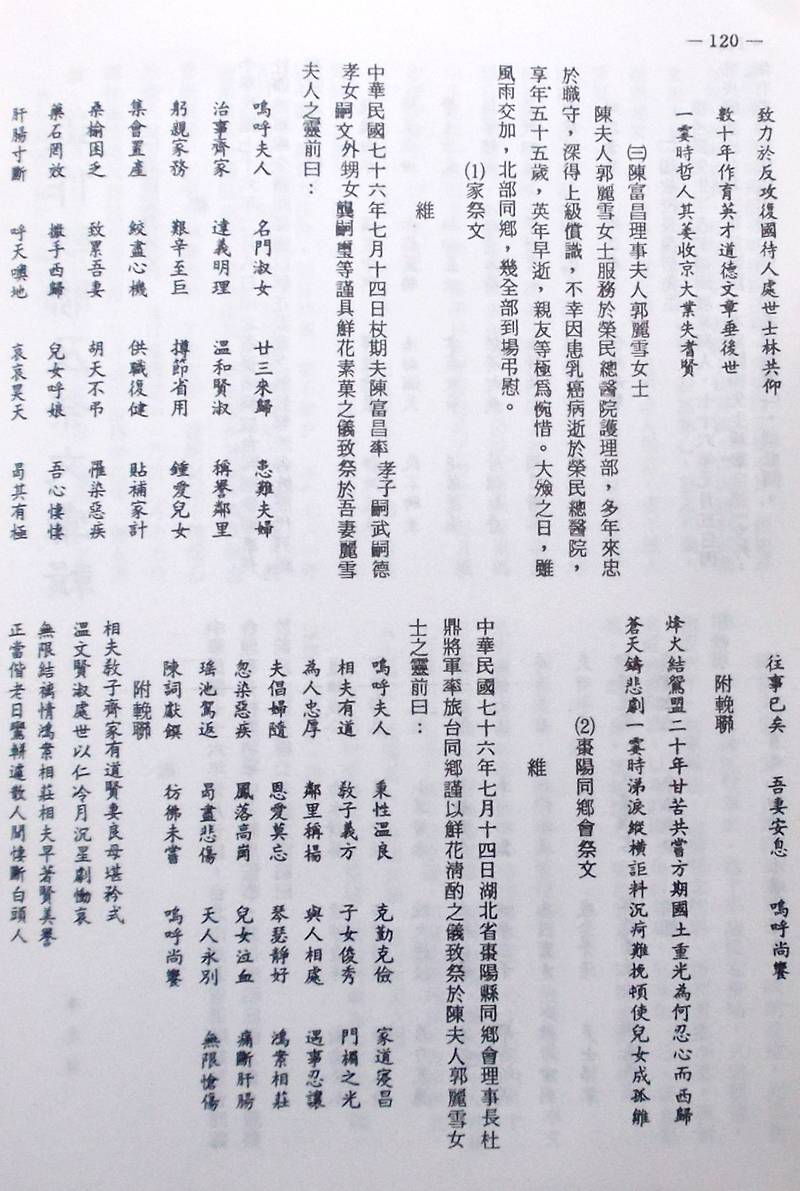 — 120 —
致力於反攻復國待人處世士林共仰
數十年作育英才道德文章垂後世
一霎時哲人其萎收京大業失耆賢
㈢陳富昌理事夫人郭麗雪女士
陳夫人郭麗雪女士服務於榮民總醫院護理部，多年來忠
於職守，深得上級償識，不幸因患乳癌病逝於榮民總醫院，
享年五十五歲，英年早逝，親友等極爲惋惜。大殮之日，雖
風雨交加，北部同鄉，幾全部到場弔慰。
⑴家祭文
維
中華民國七十六年七月十四日杖期夫陳富昌率孝子嗣武嗣德
孝女嗣文外甥女龔嗣璽等謹具鮮花素菓之儀致祭於吾妻麗雪
夫人之靈前曰：
嗚呼夫人　名門淑女　廿三來歸　患難夫婦
治事齊家　達義明理　溫和賢淑　稱譽鄰里
躬親家務　艱辛至巨　撙節省用　鍾愛兒女
集會置產　絞盡心機　供職復健　貼補家計
桑榆困乏　致累吾妻　胡天不弔　罹染惡疾
藥石罔效　撒手西歸　兒女呼娘　吾心悽悽
肝腸寸斷　呼天嚎地　哀哀昊天　曷其有極
往事已矣　吾妻安息　嗚呼尚饗
附輓聯
烽火結鴛盟二十年甘苦共嘗方期國土重光為何忍心而西歸
蒼天鑄悲劇一霎時涕淚縱橫詎料沉疴難挽頓使兒女成孤雛
⑵棗陽同鄉會祭文
維
中華民國七十六年七月十四日湖北省棗陽縣同鄉會理事長杜
鼎將軍率旅台同鄉謹以鮮花清酌之儀致祭於陳夫人郭麗雪女
士之靈前曰：
嗚呼夫人　秉性溫良　克勤克儉　家道寖昌
相夫有道　教子義方　子女俊秀　門楣之光
為人忠厚　鄰里稱揚　與人相處　遇事忍讓
夫倡婦隨　恩愛莫忘　琴瑟靜好　鴻案相莊
忽染惡疾　鳳落高崗　兒女泣血　痛斷肝腸
瑤池駕返　曷盡悲傷　天人永別　無限愴傷
陳詞獻饌　彷彿未嘗　嗚呼尚饗
附輓聯
相夫教子齊家有道賢妻良母堪矜式
溫文賢淑處世以仁冷月沉星劇慟哀
無限結褵情鴻案相莊相夫早著賢美譽
正當偕老日鸞輧遽散人間悽斷白頭人